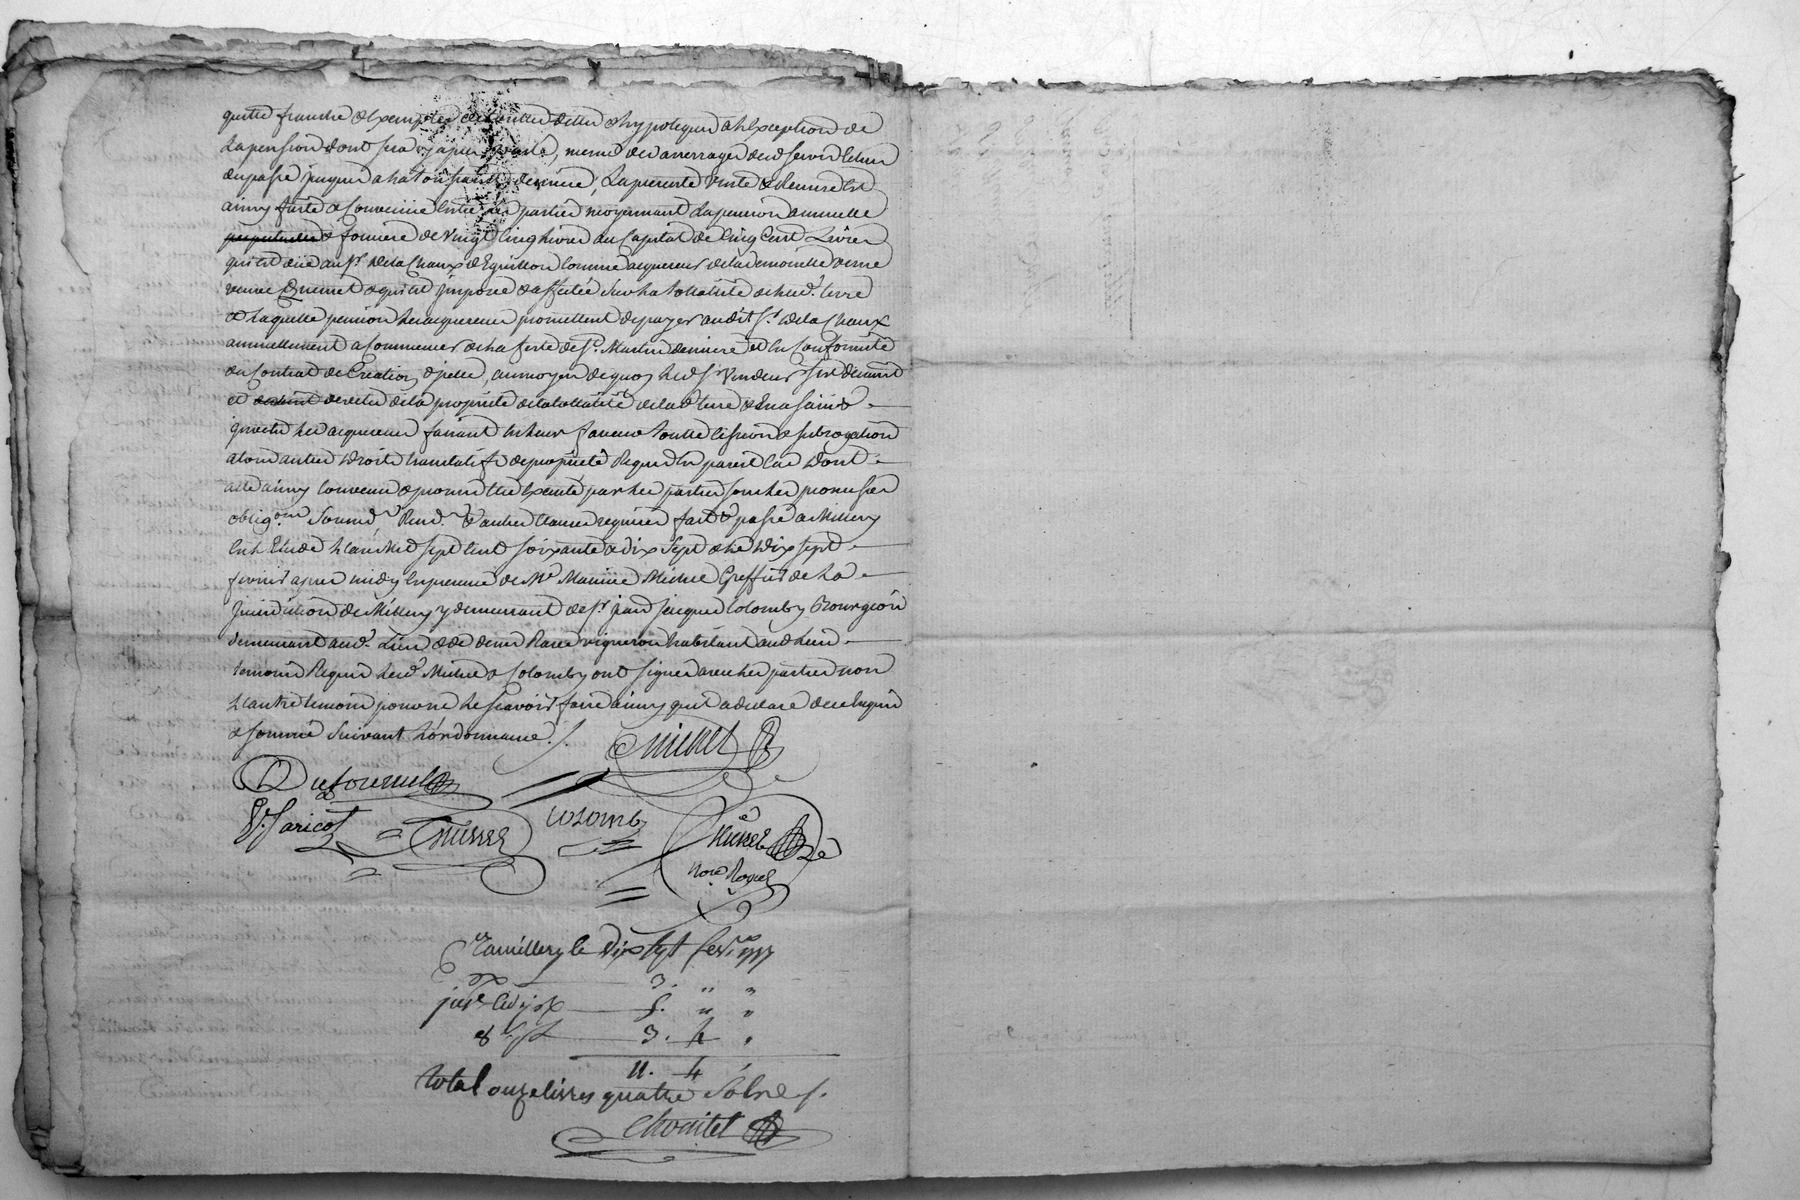 quitte franche & Exempte de touttes dettes & hypoteques a l'Exception de
La pension dont sera cy apres parlé, meme des arrerages de ses servis Echus
du passé jusques a la toussaints derniere, La presente Vente & Remise Est
ainsy faitte & Convenue Entre les parties moyennant La pension annuelle
perpetuelle & fonciere de Vingt Cinq Livres au Capital de Cinq Cent Livres
qui est düe au Sr. Delachaux d'Eguillon Comme acquereur de la demoiselle
veuve & qui est imposée & affectée Sur la tottalité de lad. terre
& laquelle pension les acquereurs promettent de payer audit Sr. Delachaux
annuellement a Commencer de la feste de St. Martin derniere et En Conformité
du Contrat de Création d'jcelle, au moyen de quoy led. Sr. Vendeur s'est demis
et devetu de la propriété de la tottalité de lad. terre & En a saisi
& investu les acquereurs faisant En leur faveur toutte Cession & subrogation
& tous autres Droits translatifs de propriété Requis En pareil Cas Dont
acte ainsy Convenu & promis Etre Executé par les parties sous les promesses
obligons. Soumis. Rend. & autres Clauses requises fait & passé a Millery
En l'Etude L'an Mil sept Cent soixante & dix Sept & le Dix sept
fevrier apres midy En presence de Me. Maurice Michel Greffier de la
Jurisdiction de Millery y demeurant de Sr. jean jacques Colomby Bourgeois
demeurant aud. Lieu & de denis vigneron habitant aud. Lieu
temoins Requis lesd. Michel & Colomby ont signé avec les parties non
L'autre temoin pour ne le sçavoir faire ainsy qu'il a declaré de ce Enquis
& sommé Suivant L'ordonnance ./.
Michel
Dufournel
Vr. Jaricot
Colomby
nore. Royal
a millery le Dix sept fev. 1777
3. " "
5. " "
8 s. p. L 3. 4 "
11. 4
total onze livres quatre Sols
Chontet